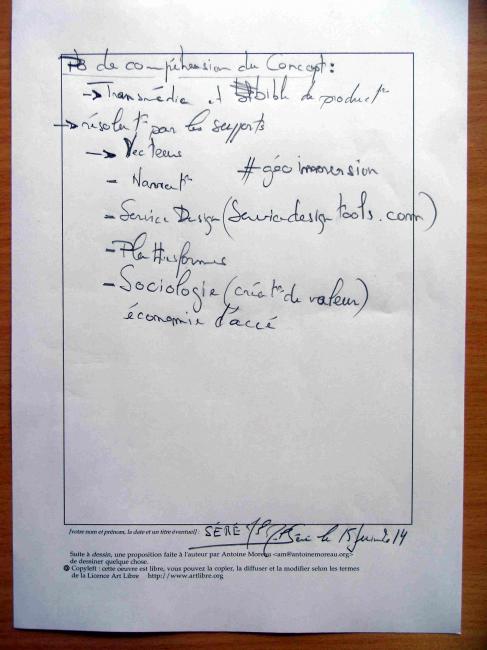 Pb de compréhension du Concept :
→ Transmédia et bible de product°
→ résolut° par les supports
→ Vecteurs
#géoimmersion
- Narrat°
- Service Design (Servicedesigntools.com)
- Platteformes
- Sociologie (créat° de valeur)
économie d'accé
[votre nom et prénom, la date et un titre éventuel] : SÉRÉ le 15 14
Suite à dessin, une proposition faite à l'auteur par Antoine Moreau <am@antoinemoreau.org>
de dessiner quelque chose.
Copyleft : cette oeuvre est libre, vous pouvez la copier, la diffuser et la modifier selon les termes
de la Licence Art Libre http://www.artlibre.org